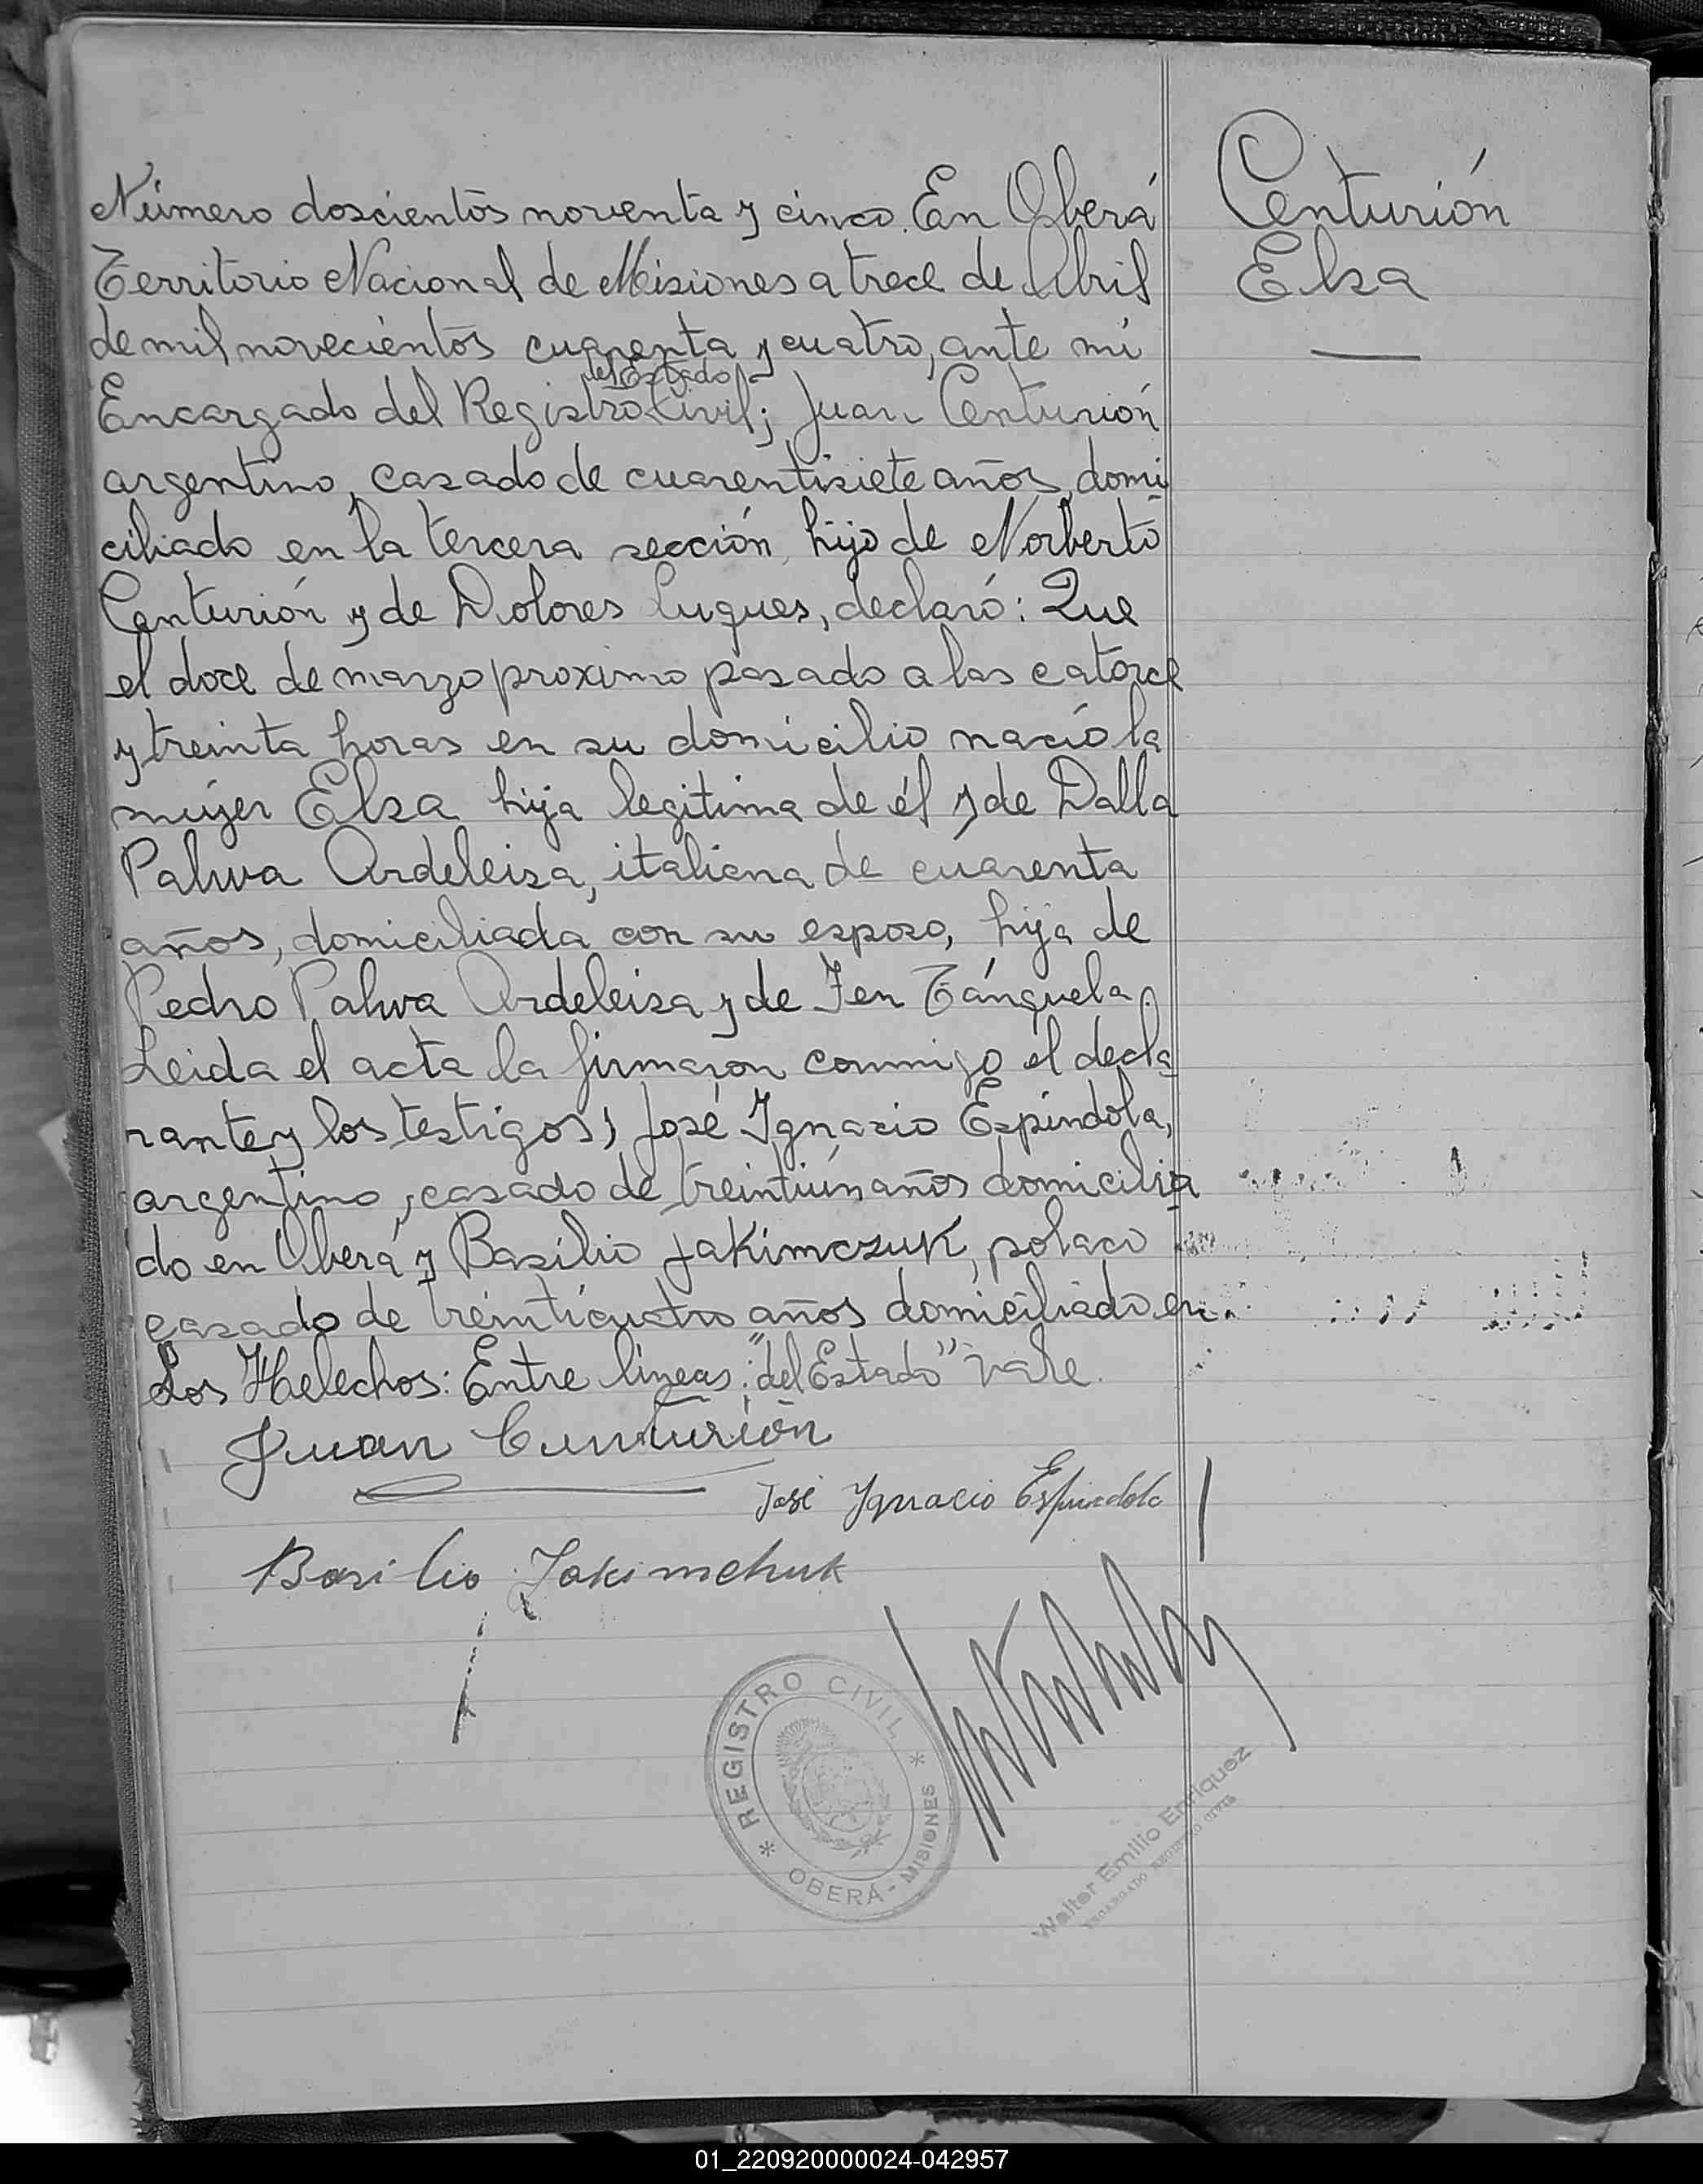 Número doscientos noventa y cinco. En Oberá
Territorio Nacional de Misiones a trece de Abril
de mil novecientos cuarenta y cuatro, ante mi
del Estado
Encargado del Registro Civil; Juan Centurión
argentino, casado de cuarentisiete años, domi
ciliado en la tercera sección, hijo de Norberto
Centurión y de Dolores Luques, declaró: Que
el doce de marzo proximo pasado a las catorce
y treinta horas en su domicilio nació la
mujer Elsa hija legitima de él y de Dalla
Palwa Ardeleisa, italiana de cuarenta
años, domiciliada con su esposo, hija de
Pedro Palwa Ardeleisa y de Fen Tánquela.
Leida el acta la firmaron conmigo el decla
rante y los testigos; José Ignacio Espíndola,
argentino, casado de treintiún años domicilia
do en Oberá y Basilio Jakimczuk, polaco
casado de treinticuatro años domiciliado en
Los Helechos: Entre lineas: "del Estado" vale.
Juan Centurión
José Ygnacio Espindola
Basilio Jakimchuk
Centurión
Elsa
REGISTRO CIVIL
OBERÁ - MISIONES
Walter Emilio Enriquez
ENCARGADO REGISTRO CIVIL
01_220920000024-042957